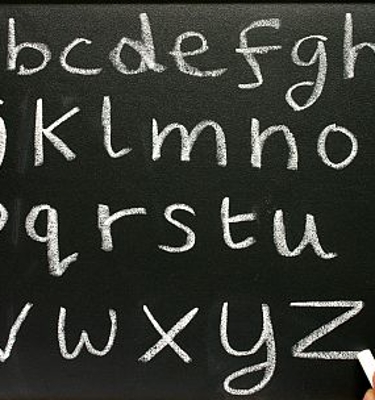 b c d e f g h
j k l m n o
p q r s t u
v w x y z